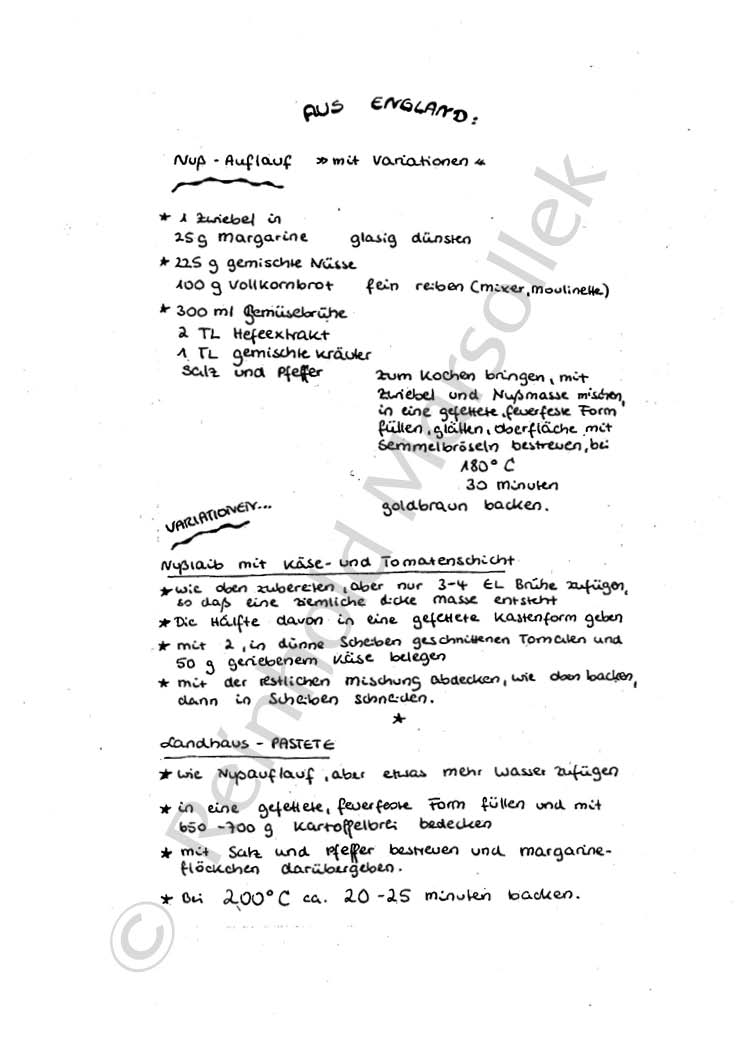 AUS ENGLAND:
Nuß - Auflauf » mit Variationen «
* 1 Zwiebel in
25g Margarine glasig dünsten
* 225 g gemischte Nüsse
100 g Vollkornbrot fein reiben (Mixer, Moulinette)
* 300 ml Gemüsebrühe
2 TL Hefeextrakt
1 TL gemischte Kräuter
Salz und Pfeffer
zum Kochen bringen, mit
Zwiebel und Nußmasse mischen,
in eine gefettete, feuerfeste Form
füllen, glätten, Oberfläche mit
Semmelbröseln bestreuen, bei
180° C
30 Minuten
goldbraun backen.
VARIATIONEN...
Nußlaib mit Käse- und Tomatenschicht
* wie oben zubereiten, aber nur 3-4 EL Brühe zufügen,
so daß eine ziemliche dicke Masse entsteht
* Die Hälfte davon in eine gefettete Kastenform geben
* mit 2, in dünne Scheiben geschnittenen Tomaten und
50 g geriebenem Käse belegen
* mit der restlichen Mischung abdecken, wie oben backen,
dann in Scheiben schneiden.
*
Landhaus - PASTETE
* wie Nußauflauf, aber etwas mehr Wasser zufügen
* in eine gefettete, feuerfeste Form füllen und mit
650 -700 g Kartoffelbrei bedecken
* mit Salz und Pfeffer bestreuen und Margarine-
flöckchen darübergeben.
* Bei 200° C ca. 20 -25 Minuten backen.
© Reinhold Marsollek